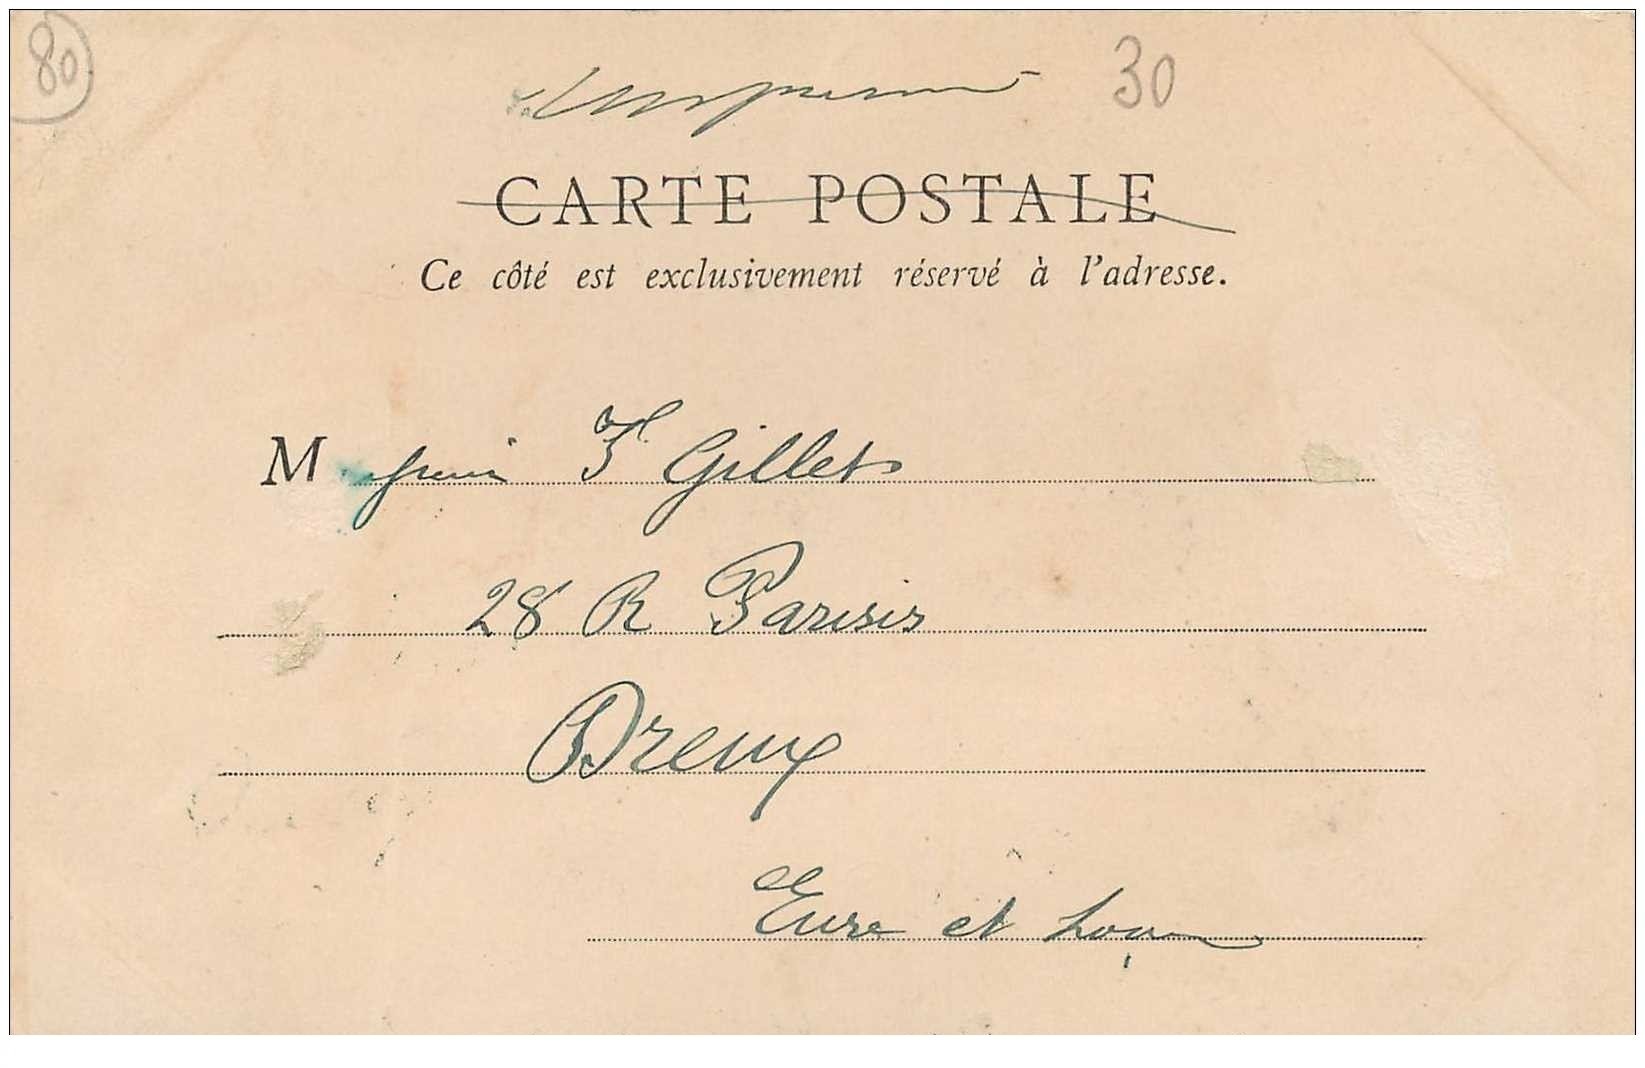 80
30
CARTE POSTALE
Ce côté est exclusivement réservé à l'adresse.
M Gillet
28 R Parisis
Dreux
Eure et Loir